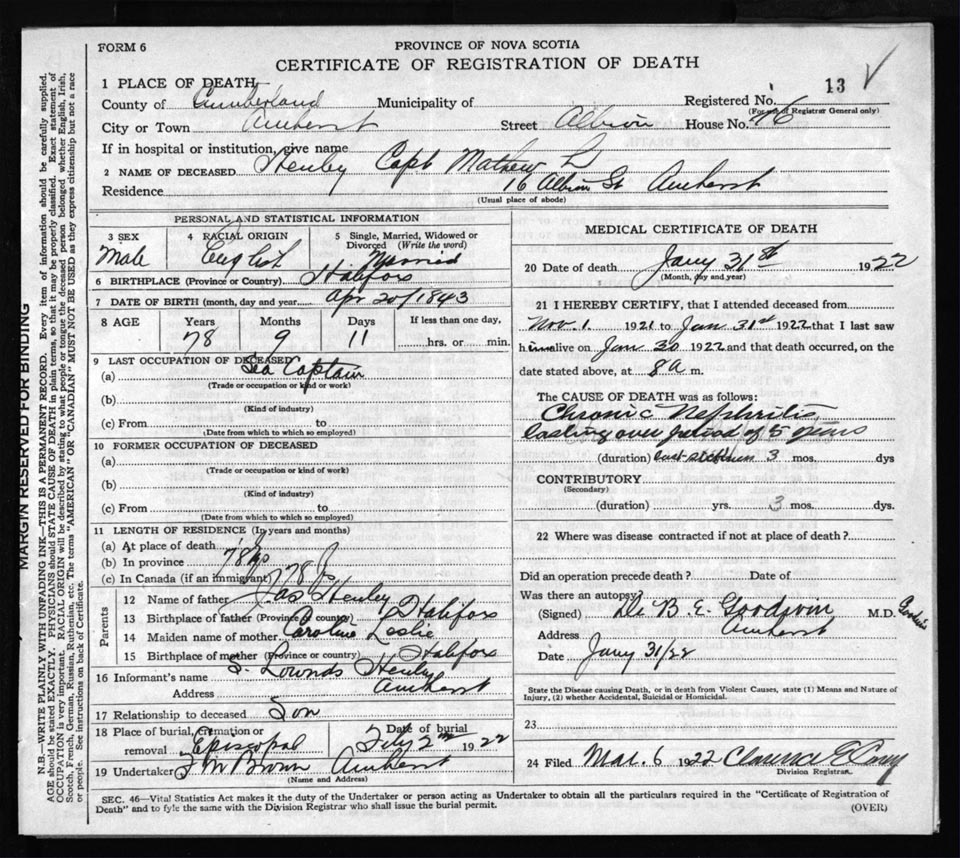 FORM 6
PROVINCE OF NOVA SCOTIA
CERTIFICATE OF REGISTRATION OF DEATH
13 ✓
1 PLACE OF DEATH
County of Cumberland Municipality of
Registered No.
(For use of Registrar General only)
City or Town Amherst Street Albion House No. 16
If in hospital or institution, give name
2 NAME OF DECEASED Henley Capt Mathew L
Residence 16 Albion St Amherst
(Usual place of abode)
PERSONAL AND STATISTICAL INFORMATION
3 SEX Male
4 RACIAL ORIGIN English
5 Single, Married, Widowed or Divorced (Write the word) Married
6 BIRTHPLACE (Province or Country) Halifax
7 DATE OF BIRTH (month, day and year) Apr 20/1843
8 AGE Years 78 Months 9 Days 11 If less than one day, hrs. or min.
9 LAST OCCUPATION OF DECEASED
(a) Sea Captain
(Trade or occupation or kind or work)
(b)
(Kind of industry)
(c) From to
(Date from which to which so employed)
10 FORMER OCCUPATION OF DECEASED
(a)
(Trade or occupation or kind of work)
(b)
(Kind of industry)
(c) From to
(Date from which to which so employed)
11 LENGTH OF RESIDENCE (In years and months)
(a) At place of death
(b) In province 78
(c) In Canada (if an immigrant) 78
Parents
12 Name of father Jas Henley
13 Birthplace of father (Province or country) Halifax
14 Maiden name of mother Caroline Leslie
15 Birthplace of mother Halifax
16 Informant's name S. Lownds Henley
Address Amherst
17 Relationship to deceased Son
18 Place of burial, cremation or removal Episcopal
Date of burial Feby 2nd 1922
19 Undertaker Brown Amherst
(Name and Address)
MEDICAL CERTIFICATE OF DEATH
20 Date of death Jany 31st 1922
(Month, day and year)
21 I HEREBY CERTIFY, that I attended deceased from
Nov. 1 1921 to Jan 31st 1922 that I last saw
him alive on Jan 30 1922 and that death occurred, on the
date stated above, at 8 a m.
The CAUSE OF DEATH was as follows:
Chronic Nephritis
lasting over period of 5 years
(duration) 3 mos. dys
CONTRIBUTORY
(Secondary)
(duration) yrs. 3 mos. dys.
22 Where was disease contracted if not at place of death?
Did an operation precede death? Date of
Was there an autopsy?
(Signed) Dr B. E. Goodwin M.D. Goodwin
Address Amherst
Date Jany 31/22
State the Disease causing Death, or in death from Violent Causes, state (1) Means and Nature of
Injury, (2) whether Accidental, Suicidal or Homicidal.
23
24 Filed Mar. 6 1922 Clarence
Division Registrar.
SEC. 46—Vital Statistics Act makes it the duty of the Undertaker or person acting as Undertaker to obtain all the particulars required in the "Certificate of Registration of
Death" and to fyle the same with the Division Registrar who shall issue the burial permit.
(OVER)
MARGIN RESERVED FOR BINDING
N.B.—WRITE PLAINLY WITH UNFADING INK—THIS IS A PERMANENT RECORD. Every item of information should be carefully supplied.
AGE should be stated EXACTLY. PHYSICIANS should STATE CAUSE OF DEATH in plain terms, so that it may be properly classified. Exact statement of
OCCUPATION is very important. RACIAL ORIGIN will be described by stating to what people or tongue the deceased person belonged whether English, Irish,
Scotch, French, German, Russian, Ruthenian, etc. The terms "AMERICAN" OR "CANADIAN" MUST NOT BE USED as they express citizenship but not a race
or people. See instructions on back of Certificate.